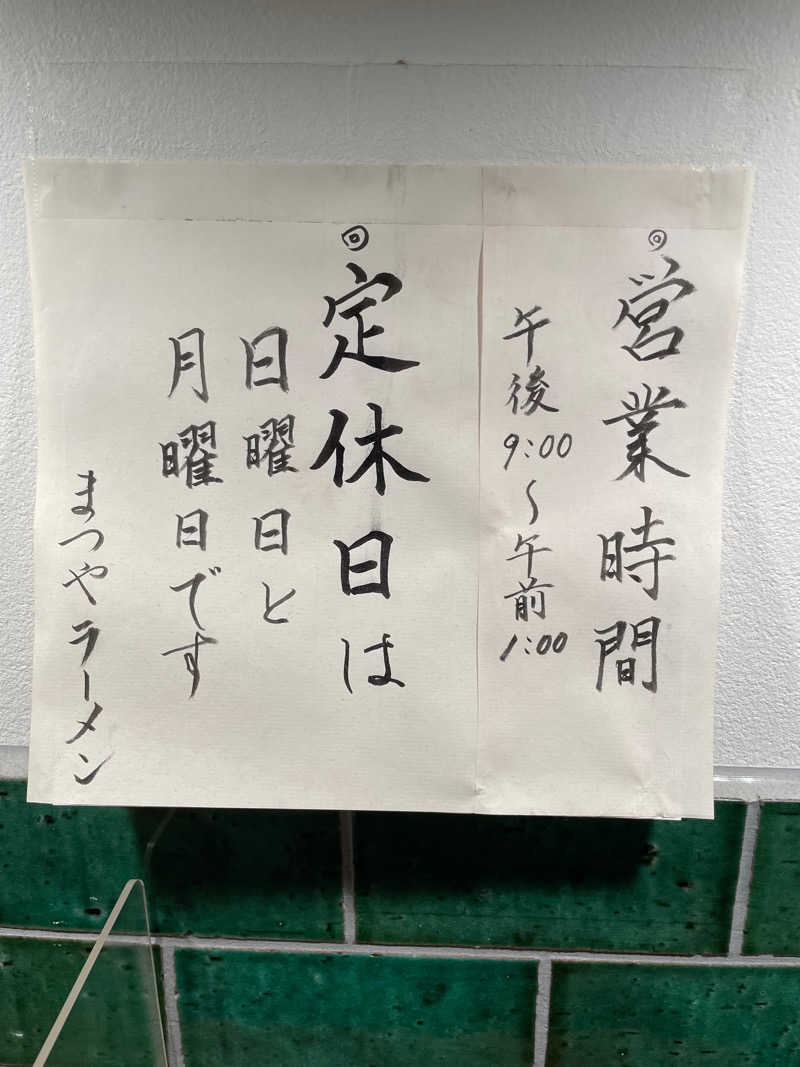 ◎営業時間
午後9:00〜午前1:00
◎定休日は
日曜日と
月曜日です
まつやラーメン